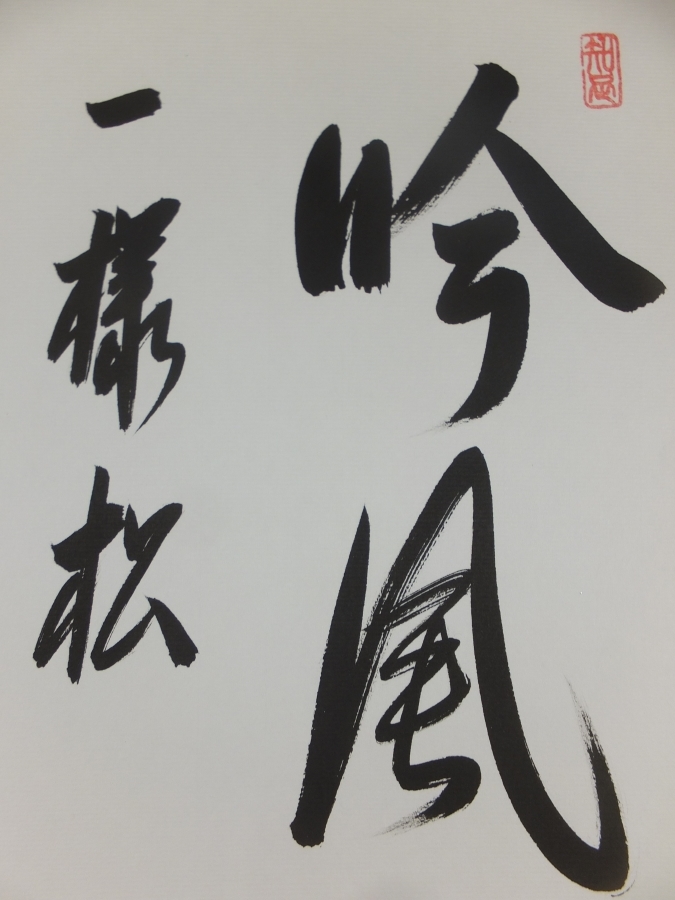 吟風
一樣松